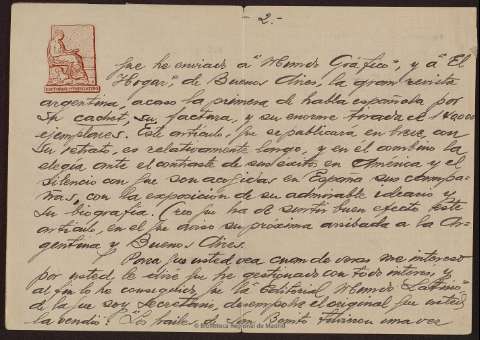 -2.-
que he enviado a "Mundo Gráfico", y a "El
Hogar", de Buenos Aires, la gran revista
argentina, acaso la primera de habla española por
su cachet, su factura, y su enorme tirada
ejemplares. Este artículo, que se publicará en breve, con
su retrato, es relativamente largo, y en él combino la
elegía ante el contraste de sus éxitos en América y el
silencio con que son acogidas en España sus
con la exposición de su admirable ideario y
su biografía. Creo que ha de surtir buen efecto este
artículo, en el que aviso su próxima arribada a la Ar-
gentina y Buenos Aires.
Para que usted vea cuan de veras me intereso
por usted le diré que he gestionado con todo interés, y
al fin lo he conseguido, que la "Editorial Mundo Latino"
de la que soy Secretario, desempolve el original que usted
la vendió: "Los bailes de San Benito una vez
© Biblioteca Regional de Madrid